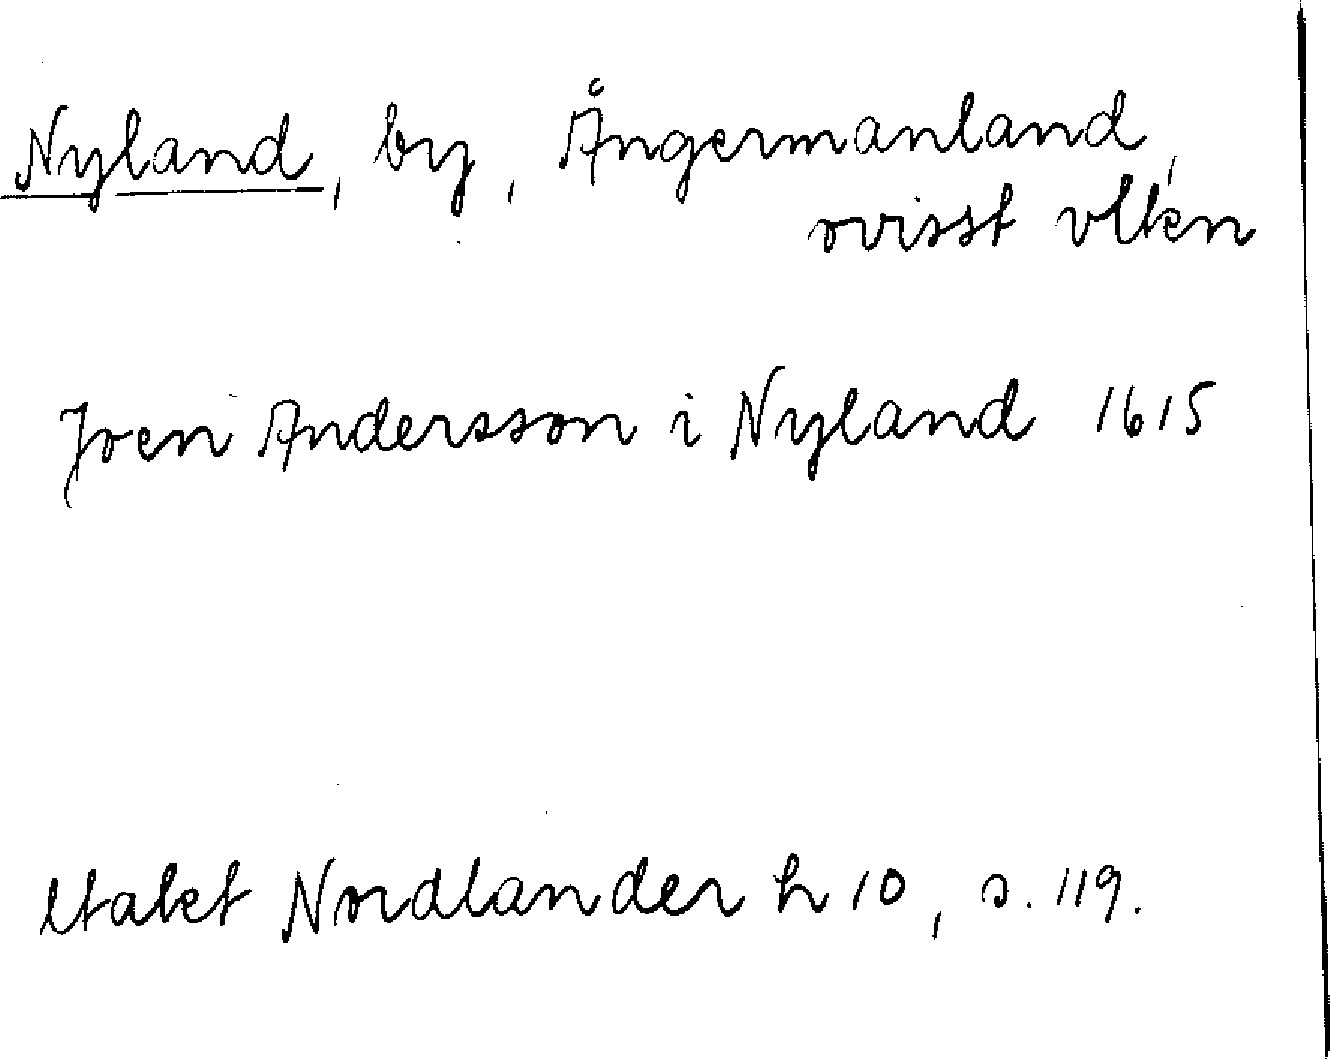 Nyland, by, Ångermanland,
ovisst vilken
Joen Andersson i Nyland 1615
Nordlander h 10, s. 119.